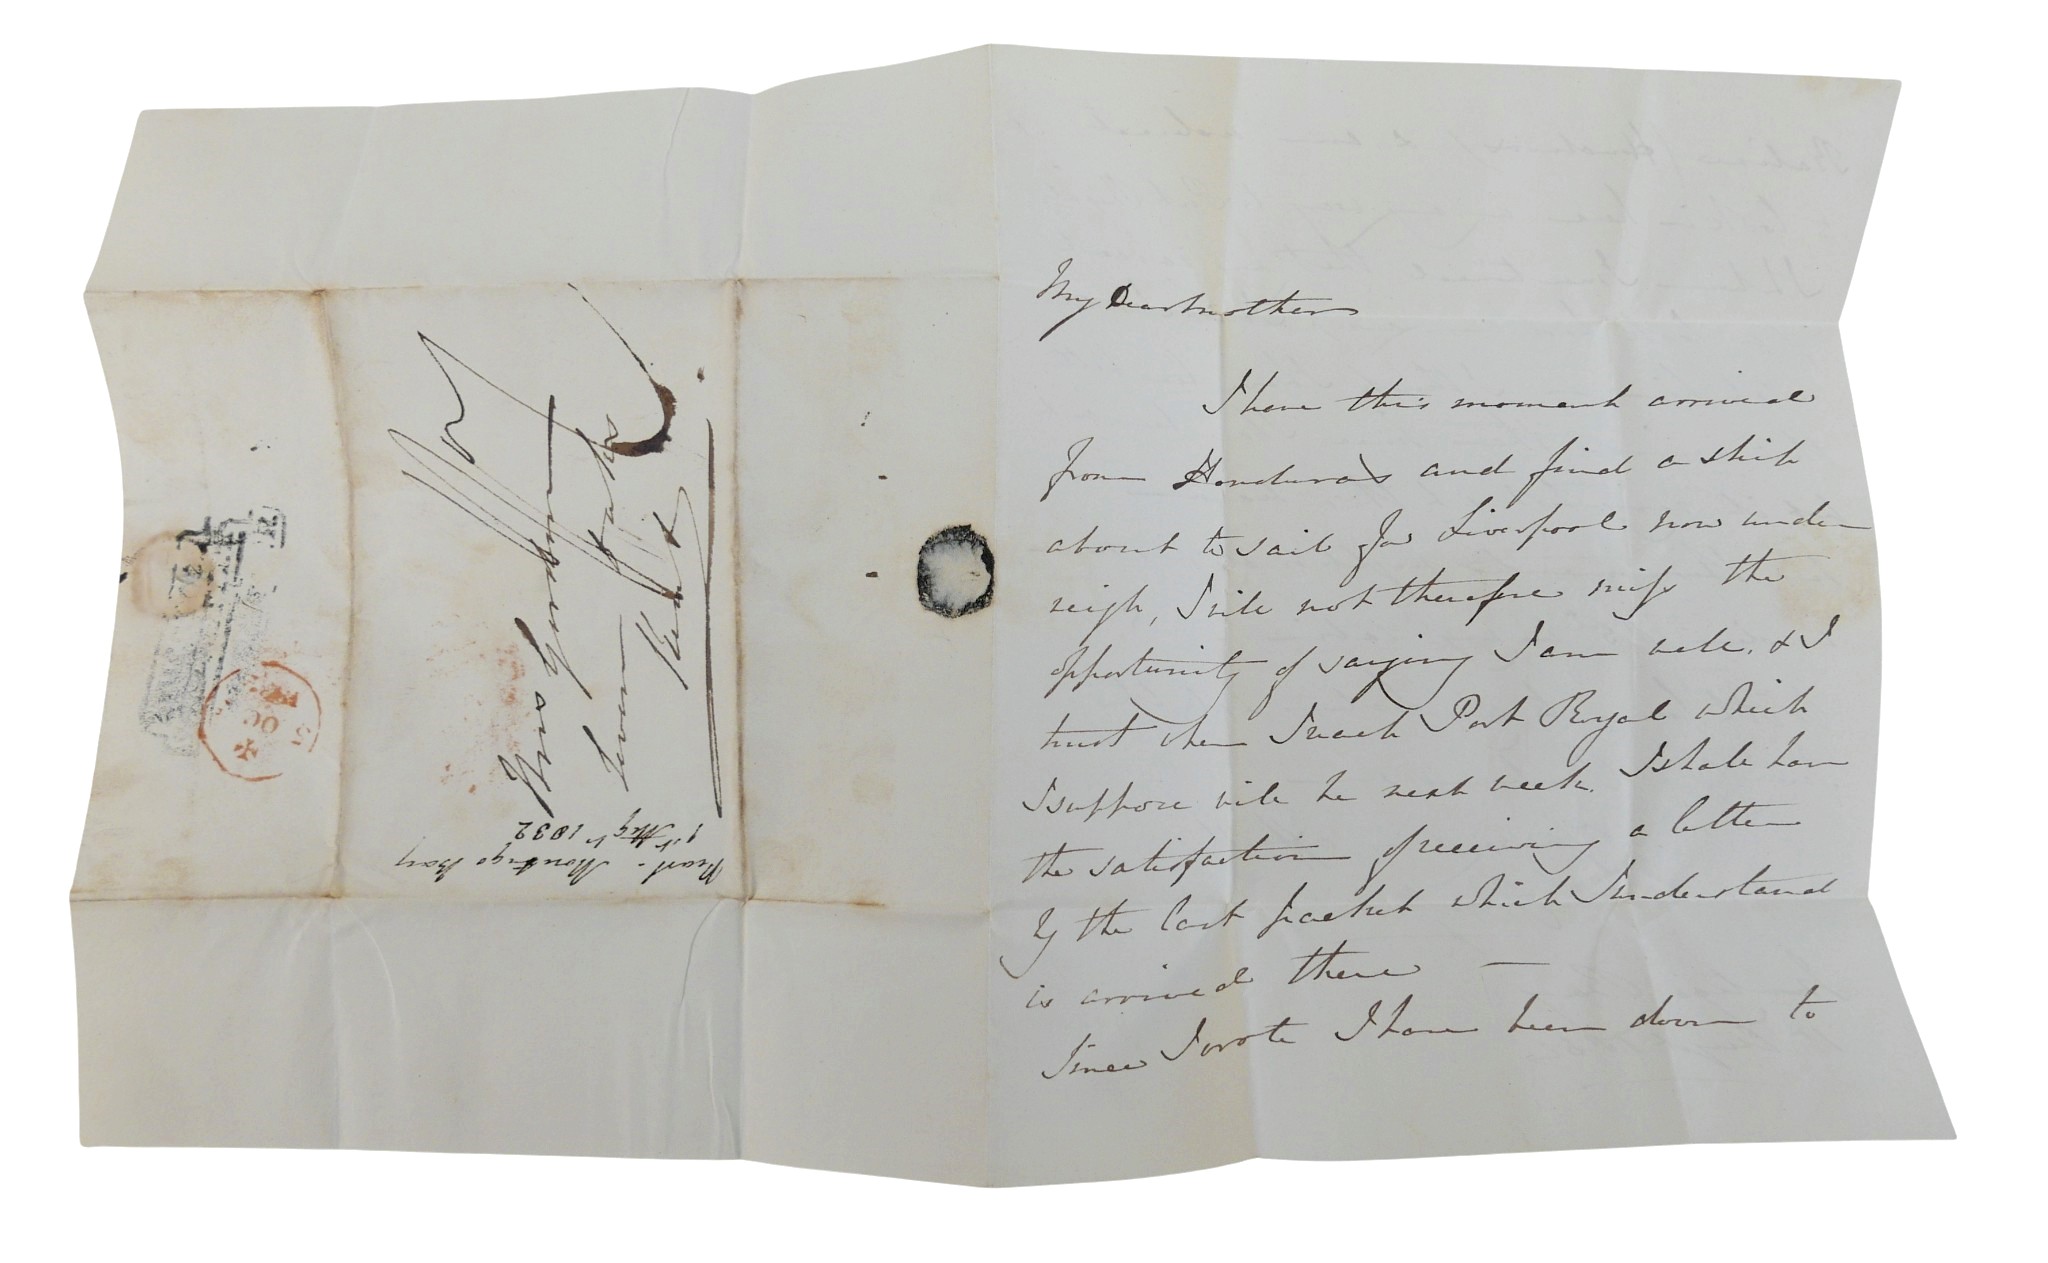 My Dear Mother
I have this moment arrived
from Honduras and find a ship
about to sail for Liverpool now under
weigh, I will not therefore miss the
opportunity of saying I am well. & I
trust when I reach Port Royal which
I suppose will be next week. I shall have
the satisfaction of receiving a letter
by the last packet which I understand
is arrived there —
Since I wrote I have been down to
Mrs Yorke
Seven Oaks
Kent
Montego Bay
1st 1832
5
OC